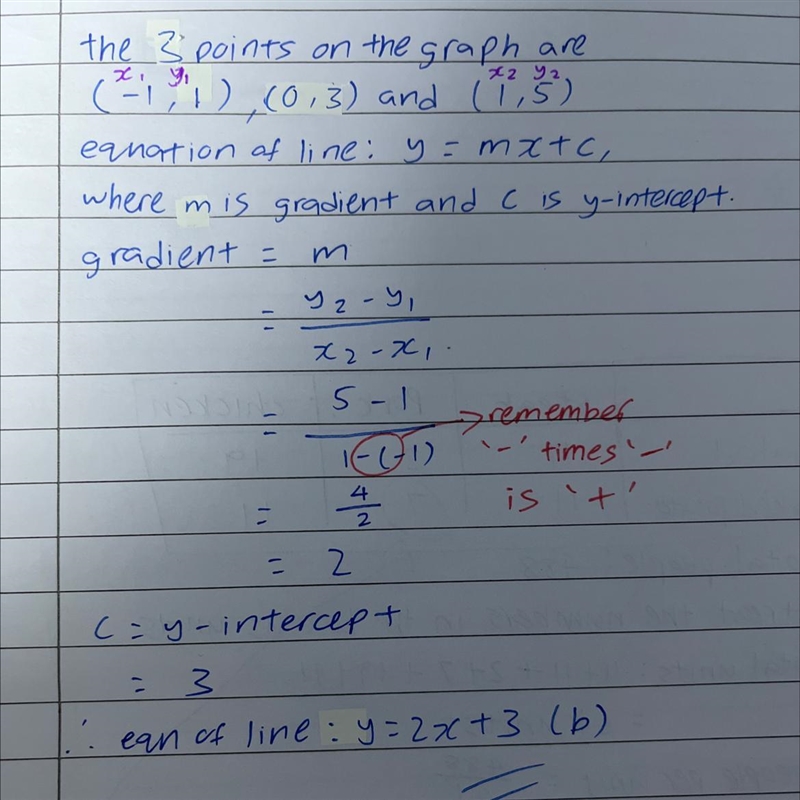 the 3 points on the graph are
x1 y1 x2 y2
(-1, 1), (0, 3) and (1, 5)
equation of line: y = mx + c,
where m is gradient and c is y-intercept.
gradient = m
= y2 - y1 / x2 - x1.
= 5 - 1 / 1 - (-1) → remember
'-' times '-'
is '+'
= 4/2
= 2
c = y-intercept
= 3
∴ eqn of line : y = 2x + 3 (b)